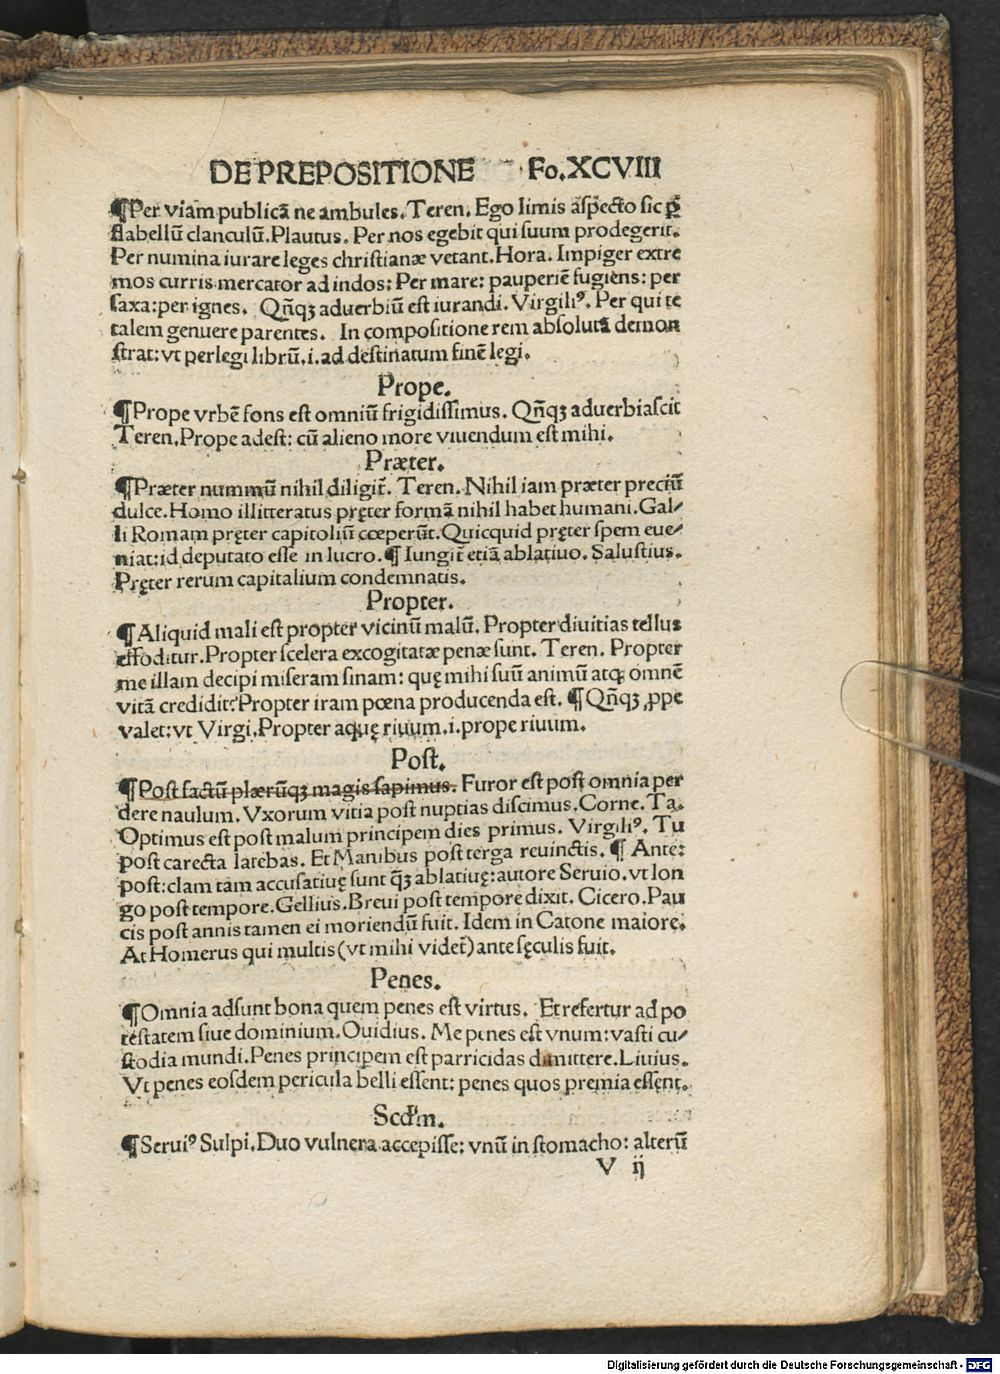 DE PREPOSITIONE Fo.XCVIII
¶Per viam publicā ne ambules. Teren. Ego limis aspecto sic ꝑ
flabellū clanculū. Plautus. Per nos egebit qui suum prodegerit.
Per numina iurare leges christianæ vetant. Hora. Impiger extre
mos curris mercator ad indos: Per mare: pauperiē fugiens: per
saxa: per ignes. Qñqꝫ aduerbiū est iurandi. Virgiliꝰ. Per qui te
talem genuere parentes. In compositione rem absolutā demon
strat: vt perlegi librū. i. ad destinatum finē legi.
Prope.
¶Prope vrbē fons est omniū frigidissimus. Qñqꝫ aduerbiascit
Teren. Prope adest: cū alieno more viuendum est mihi.
Præter.
¶Præter nummū nihil diligit̄. Teren. Nihil iam præter preciū
dulce. Homo illitteratus pręter formā nihil habet humani. Gal⸗
li Romam pręter capitoliū cœperūt. Quicquid pręter spem eue⸗
niat: id deputato esse in lucro. ¶ Iungit̄ etiā ablatiuo. Salustius.
Pręter rerum capitalium condemnatis.
Propter.
¶Aliquid mali est propter vicinū malū. Propter diuitias tellus
effoditur. Propter scelera excogitatæ penæ sunt. Teren. Propter
me illam decipi miseram sinam: quę mihi suū animū atqꝫ omnē
vitā credidit? Propter iram pœna producenda est. ¶ Qñqꝫ ꝓpe
valet: vt Virgi. Propter aquę riuum. i. prope riuum.
Post.
¶Post factū plærūqꝫ magis sapimus. Furor est post omnia per
dere naulum. Vxorum vitia post nuptias discimus. Corne. Ta.
Optimus est post malum principem dies primus. Virgiliꝰ. Tu
post carecta latebas. Et Manibus post terga reuinctis. ¶ Ante:
post: clam tam accusatiuę sunt q̄ꝫ ablatiuę: autore Seruio. vt lon
go post tempore. Gellius. Breui post tempore dixit. Cicero. Pau
cis post annis tamen ei moriendū fuit. Idem in Catone maiore.
At Homerus qui multis (vt mihi videt̄) ante sęculis fuit.
Penes.
¶Omnia adsunt bona quem penes est virtus. Et refertur ad po
testatem siue dominium. Ouidius. Me penes est vnum: vasti cu⸗
stodia mundi. Penes principem est parricidas dimittere. Liuius.
Vt penes eosdem pericula belli essent: penes quos premia essent.
Scd'm.
¶Seruiꝰ Sulpi. Duo vulnera accepisse: vnū in stomacho: alterū
V ij
Digitalisierung gefördert durch die Deutsche Forschungsgemeinschaft - DFG